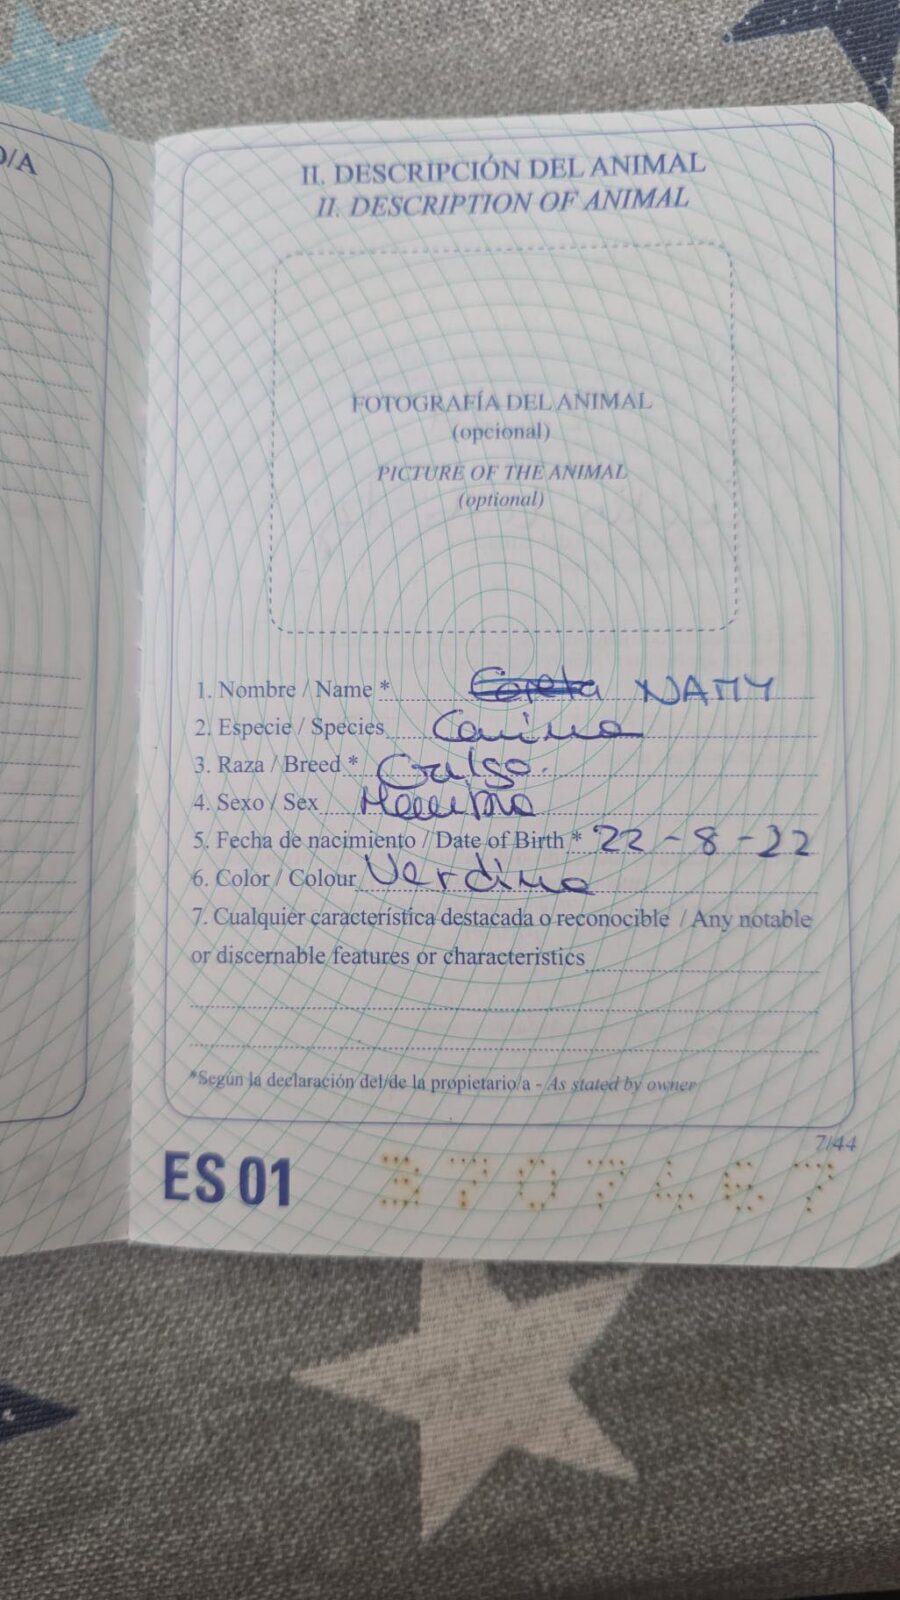 O/A
II. DESCRIPCIÓN DEL ANIMAL
II. DESCRIPTION OF ANIMAL
FOTOGRAFÍA DEL ANIMAL
(opcional)
PICTURE OF THE ANIMAL
(optional)
1. Nombre / Name * NAMY
2. Especie / Species Canina
3. Raza / Breed * Galgo.
4. Sexo / Sex Hembra
5. Fecha de nacimiento / Date of Birth * 22-8-22
6. Color / Colour Verdina
7. Cualquier característica destacada o reconocible / Any notable
or discernable features or characteristics
*Según la declaración del/de la propietario/a - As stated by owner
7/44
ES 01 3707467